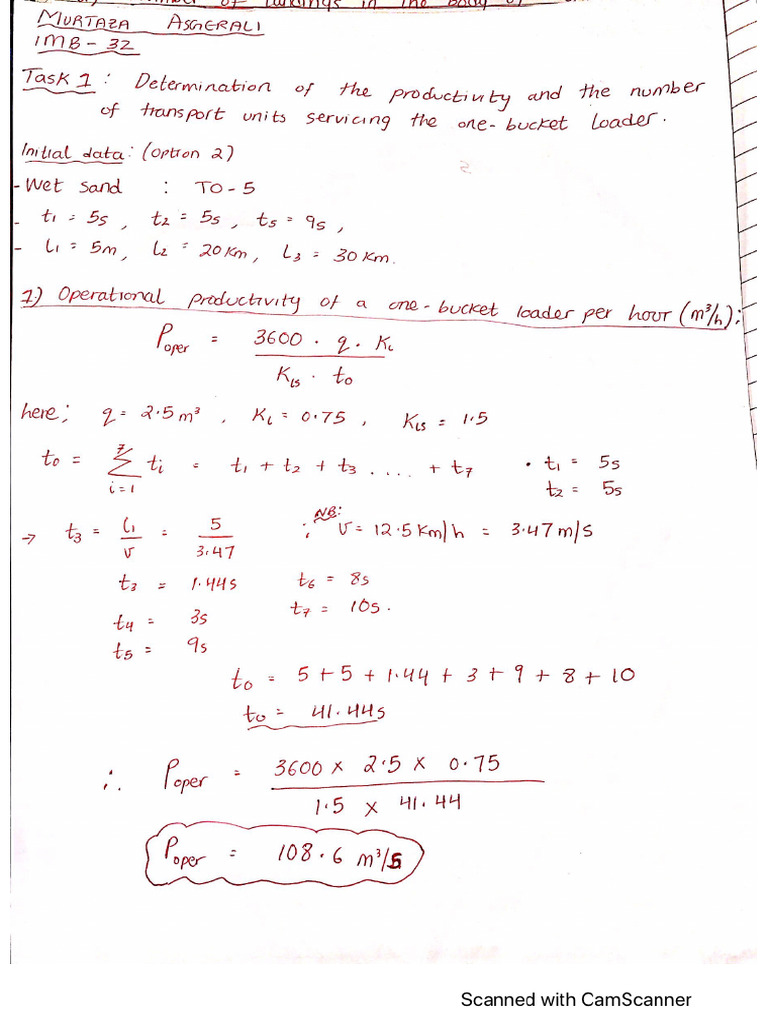 number of landings in the body of
MURTAZA ASGERALI
IMB - 32
Task 1 : Determination of the productivity and the number
of transport units servicing the one-bucket loader.
Initial data: (Option 2)
- Wet sand : TO - 5
- t₁ = 5s, t₂ = 5s, t₅ = 9s,
- L₁ = 5m, L₂ = 20 Km, L₃ = 30 Km.
1) Operational productivity of a one-bucket loader per hour (m³/h):
Poper = 3600 · q · KL
KLS · to
here; q = 2.5m³, KL = 0.75, KLS = 1.5
to = 7 Σ i=1 ti = t₁ + t₂ + t₃ .... + t₇ • t₁ = 5s
t₂ = 5s
→ t₃ = L₁/v = 5/3.47 ; NB: V = 12.5 Km/h = 3.47 m/s
t₃ = 1.44s t₆ = 8s
t₄ = 3s t₇ = 10s.
t₅ = 9s
to = 5 + 5 + 1.44 + 3 + 9 + 8 + 10
to = 41.44s
∴ Poper = 3600 x 2.5 x 0.75
1.5 x 41.44
Poper = 108.6 m³/s
Scanned with CamScanner